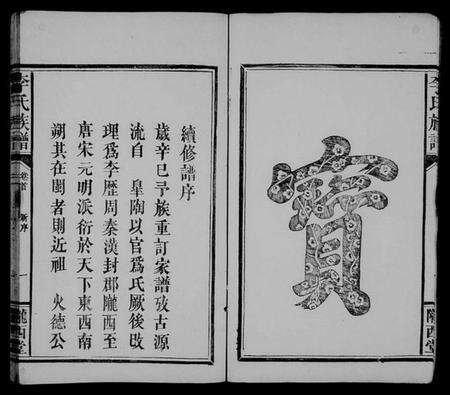 寶
李氏族譜
隴西堂
續修譜序
歲辛巳予族重訂家譜攷古源
流自 皐陶以官爲氏厥後改
理爲李歷周秦漢封郡隴西至
唐宋元明派衍於天下東西南
朔其在閩者則近祖 火德公
李氏族譜
卷首
新序
一
隴西堂